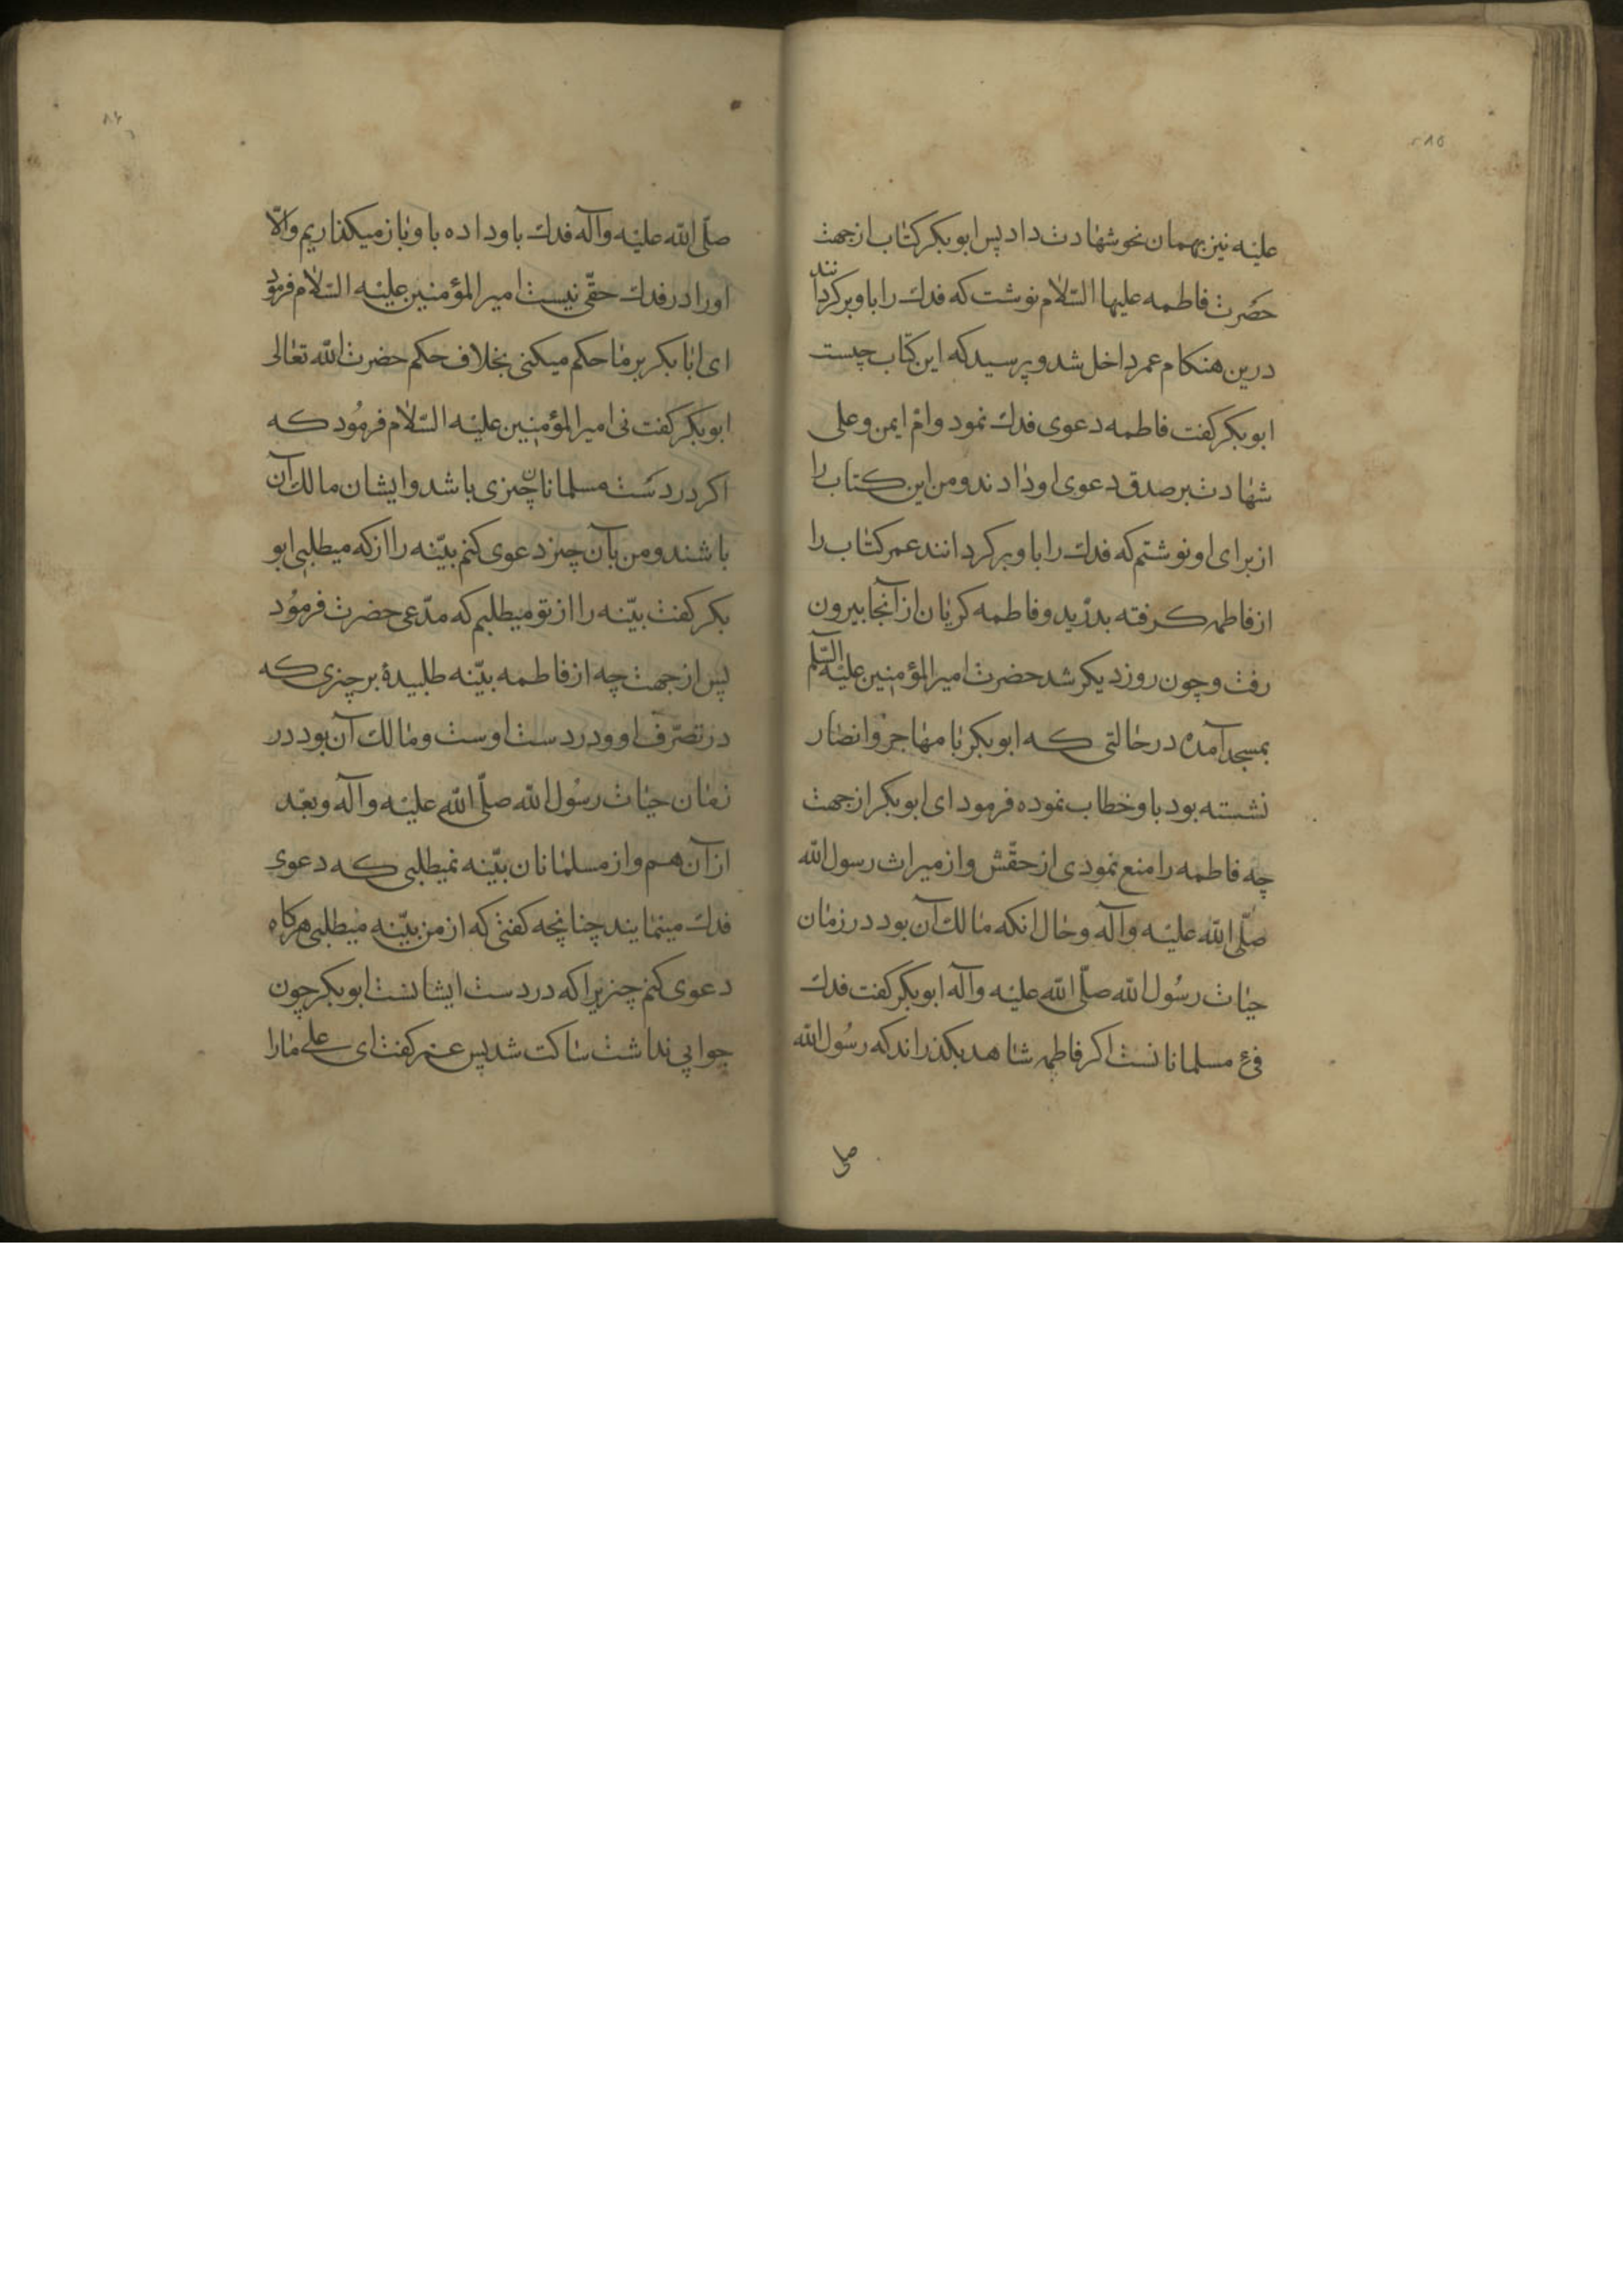 علیه نیز بهمان نحو شهادت داد پس ابوبکر کتاب از جهت
حضرت فاطمه علیها السّلام نوشت که فدك را باو بر کردانند
درین هنکام عمر داخل شد و پرسید که این کتاب چیست
ابوبکر کفت فاطمه دعوی فدك نمود و امّ ایمن و علی
شهادت بر صدق دعوی او دادند و من این کتاب را
از برای او نوشتم که فدك را باو بر کردانند عمر کتاب را
از فاطمه کرفته بدرّید و فاطمه کریان از آنجا بیرون
رفت و چون روز دیکر شد حضرت امیر المؤمنین علیه السّلم
بمسجد آمده در حالتی که ابوبکر با مهاجر و انصار
نشسته بود باو خطاب نموده فرمود ای ابوبکر از جهت
چه فاطمه را منع نمودی از حقّش و از میراث رسول الله
صلّی الله علیه وآله و حال انکه مالك آن بود در زمان
حیات رسُول الله صلّی الله علیه وآله ابوبکر کفت فدك
فئ مسلمانانست اکر فاطمه شاهد بکذراند که رسُول الله
صلّی الله علیه وآله فدك باو داده باو باز میکذاریم والّا
اورا در فدك حقّی نیست امیر المؤمنین علیه السّلام فرمود
ای ابا بکر بر ما حکم میکنی بخلاف حکم حضرت الله تعالی
ابوبکر کفت نی امیر المؤمنین علیه السّلام فرمُود که
اکر در دست مسلمانان چیزی باشد و ایشان مالك آن
باشند و من بآن چیز دعوی کنم بیّنه را از که میطلبی ابو
بکر کفت بیّنه را از تو میطلبم که مدّعی حضرت فرمُود
پس از جهت چه از فاطمه بیّنه طلبیدۀ بر چیزی که
در تصرّف او و در دست اوست و مالك آن بود در
زمان حیات رسُول الله صلّی الله علیه وآله و بعد
از آن هم و از مسلمانان بیّنه نمیطلبی که دعوی
فدك مینمایند چنانچه کفتی که از من بیّنه میطلبی هرکاه
دعوی کنم چیزیرا که در دست ایشانست ابوبکر چون
جوابی نداشت ساکت شد پس عمر کفت ای علی مارا